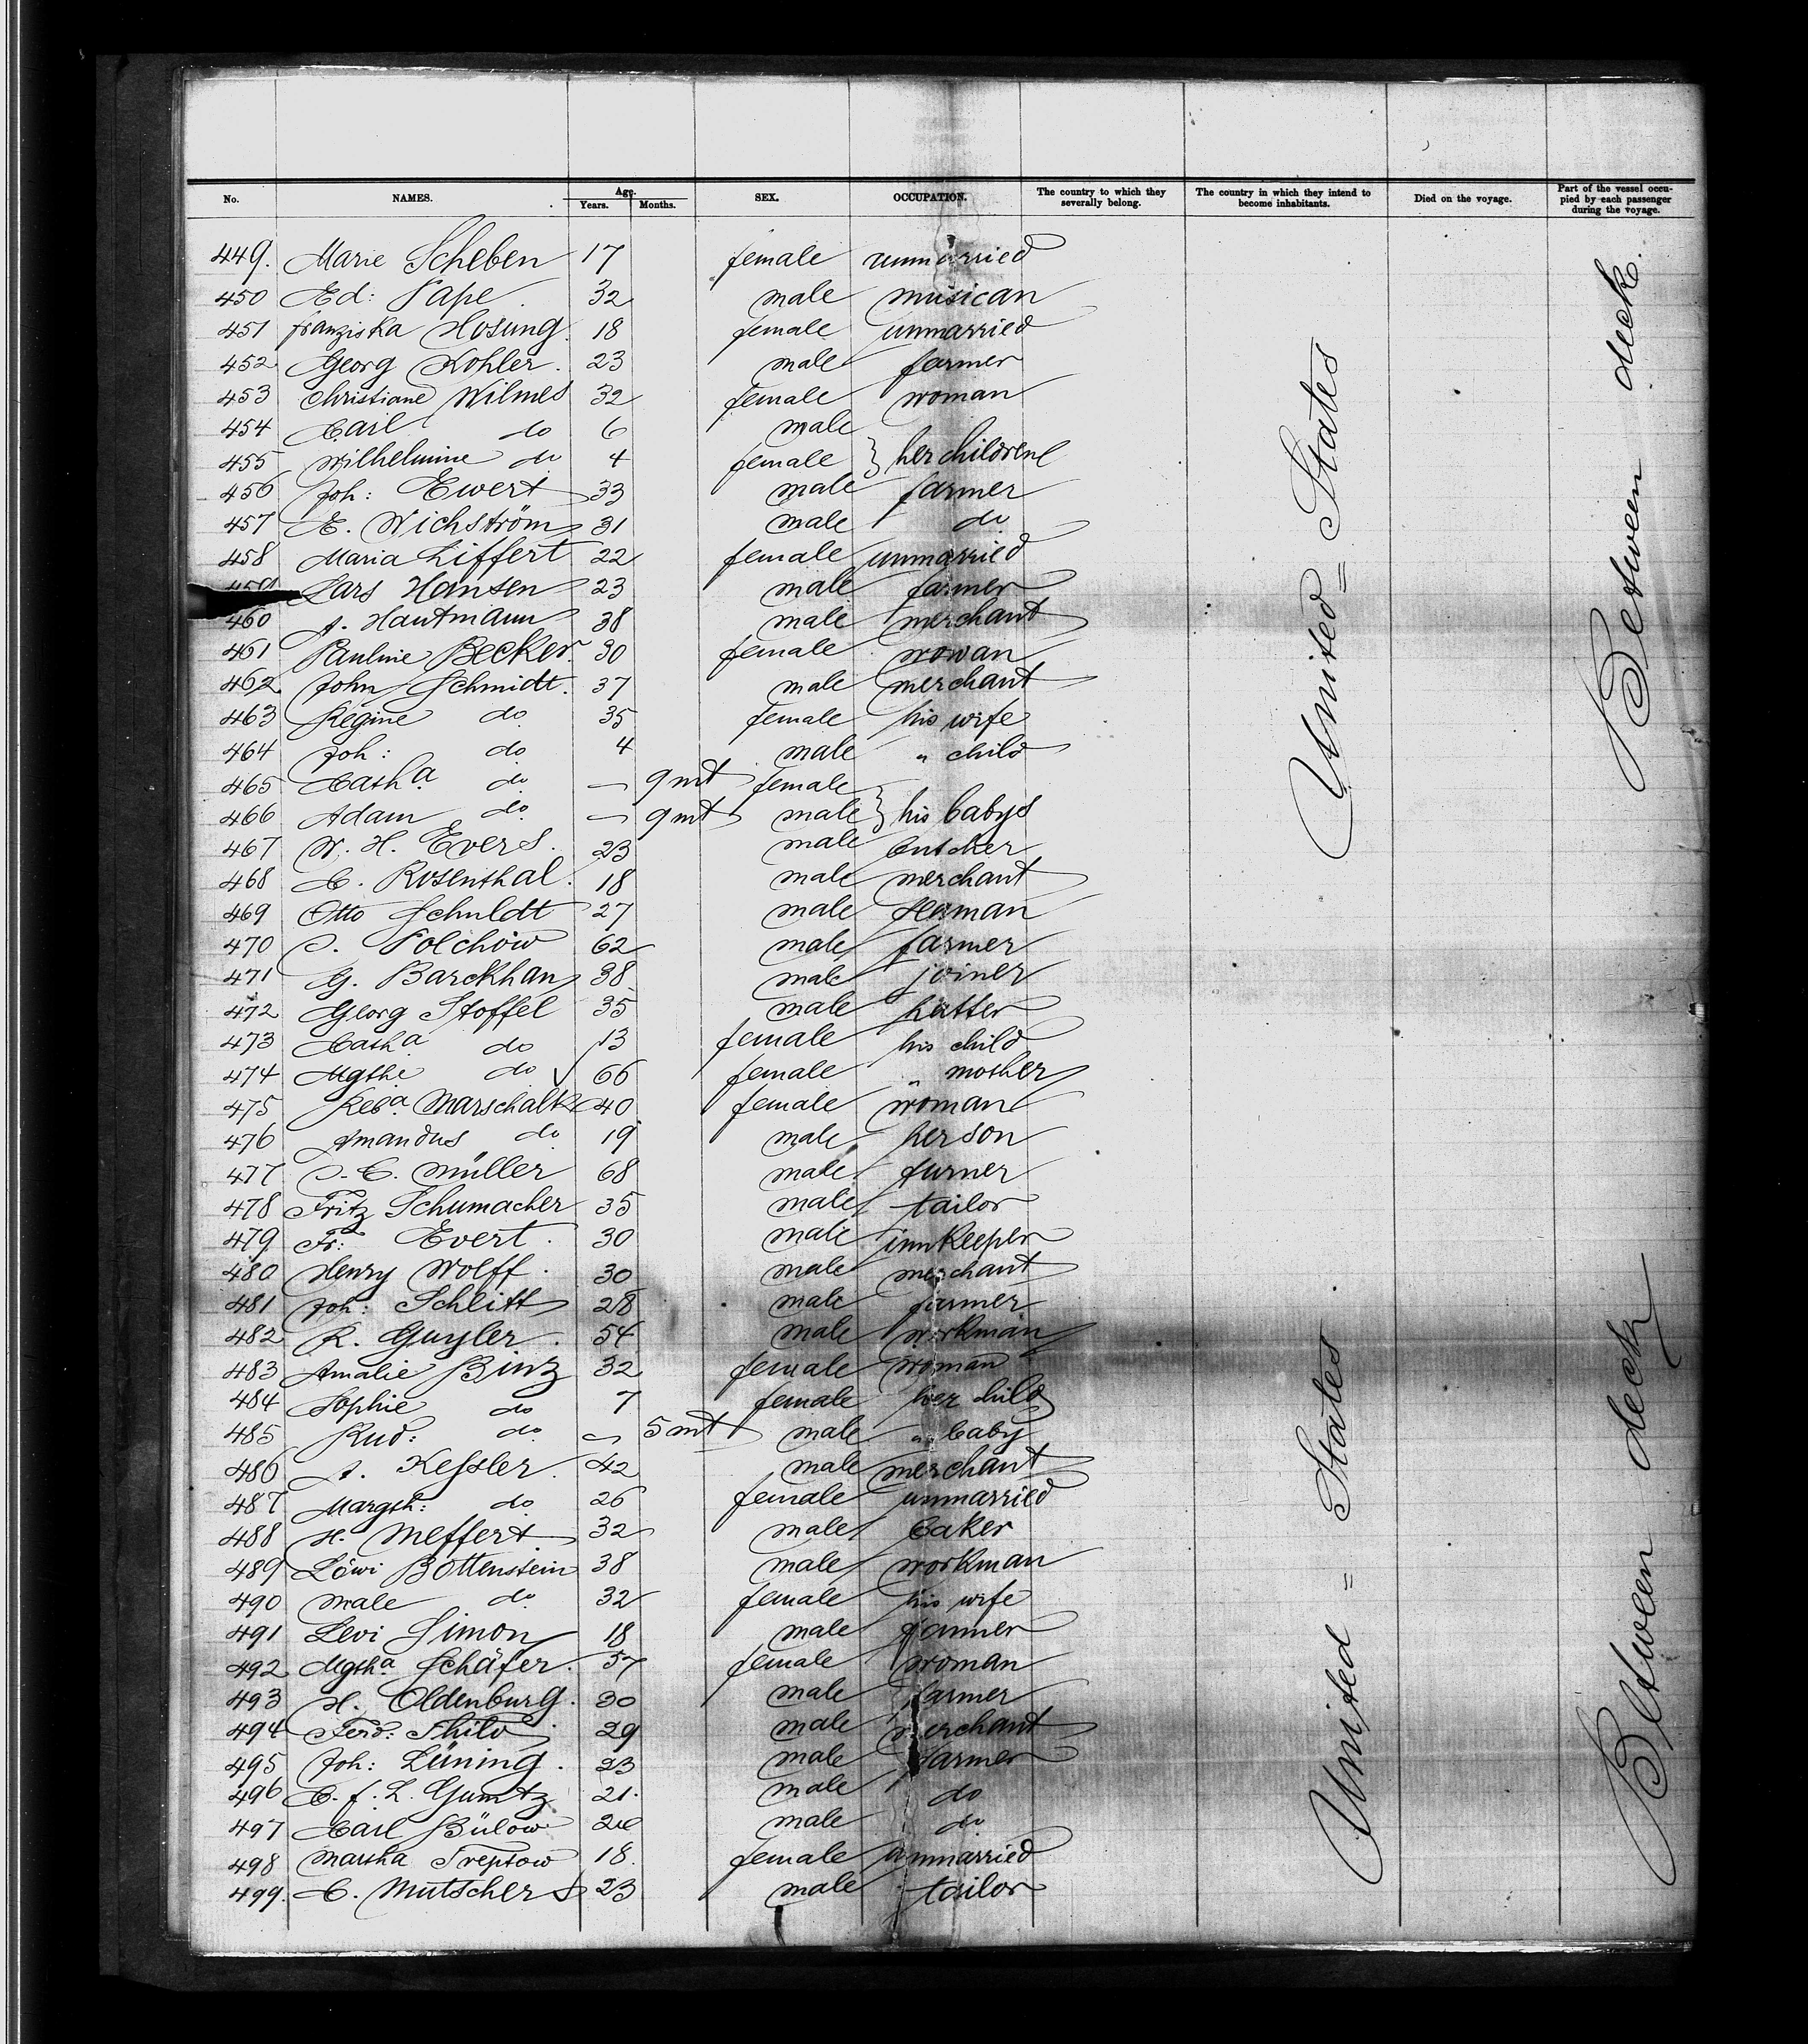 No. NAMES. Age. Years. Months. SEX. OCCUPATION. The country to which they severally belong. The country in which they intend to become inhabitants. Died on the voyage. Part of the vessel occupied by each passenger during the voyage.
449. Marie Scheben 17 female unmarried
450 Ed: Pape. 32 male musican
451 Franziska Hosung. 18 female unmarried
452 Georg Kohler. 23 male farmer
453 Christiane Wilmes 32 female woman
454 Carl do 6 male
455 Wilhelmine do 4 female } her children
456 Joh: Ewert 33 male farmer
457 E. Wichström 31 male do
458 Maria Liffert 22 female unmarried
459 Lars Hansen 23 male farmer
460 A. Hautmann 38 male merchant
461 Pauline Becker. 30 female wowan
462 John Schmidt. 37 male merchant
463 Regine do 35 female his wife
464 Joh: do 4 male " child
465 Cath.a do — 9 mt female
466 Adam do — 9 mt male } his babys
467 W. H. Evers. 23 male butcher
468 C. Rosenthal. 18 male merchant
469 Otto Schuldt 27 male seaman
470 J. Polchow 62 male farmer
471 G. Barckhan 38 male joiner
472 Georg Stoffel 35 male hatter
473 Cath.a do 13 female his child
474 Mgthe do 66 female " mother
475 Reb.a Marschalk 40 female woman
476 Amandus do 19 male her son
477 J. C. Müller 68 male turner
478 Fritz Schumacher 35 male tailor
479 Fr: Evert. 30 male innkeeper
480 Henry Wolff. 30 male merchant
481 Joh: Schlitt 28 male farmer
482 R. Guyler. 54 male workman
483 Amalie Binz 32 female woman
484 Sophie do 7 female her child
485 Rud: do — 5 mt male " baby
486 A. Kessler. 42 male merchant
487 Margth: do 26 female unmarried
488 H. Meffert 32 male baker
489 Löwi Bottenstein 38 male workman
490 Male do 32 female his wife
491 Levi Simon 18 male farmer
492 Mgth.a Schäfer. 57 female woman
493 H. Oldenburg. 30 male farmer
494 Ferd: Thilo 29 male merchant
495 Joh: Lüning. 23 male farmer
496 C. F. L. Gumtz 21. male do
497 Carl Bülow male do
498 Martha Treptow 18. female unmarried
499. C. Mutschers 23 male tailor
United = States
Between deck.
United = States
Between deck